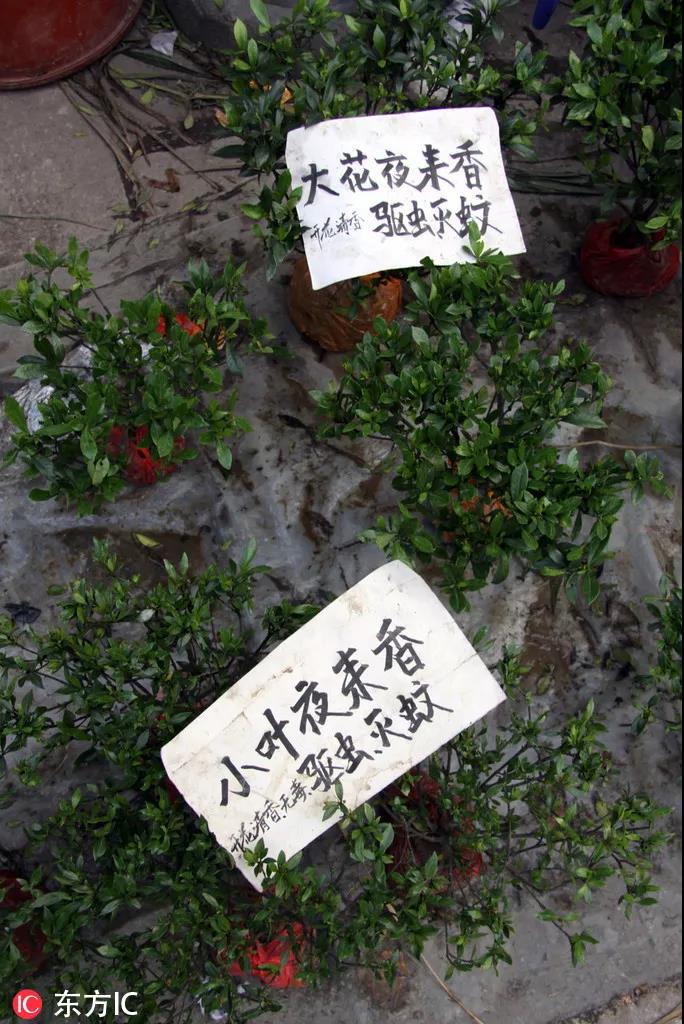 大花夜来香
开花清香 驱虫灭蚊
小叶夜来香
开花清香无毒 驱虫灭蚊
IC 东方IC